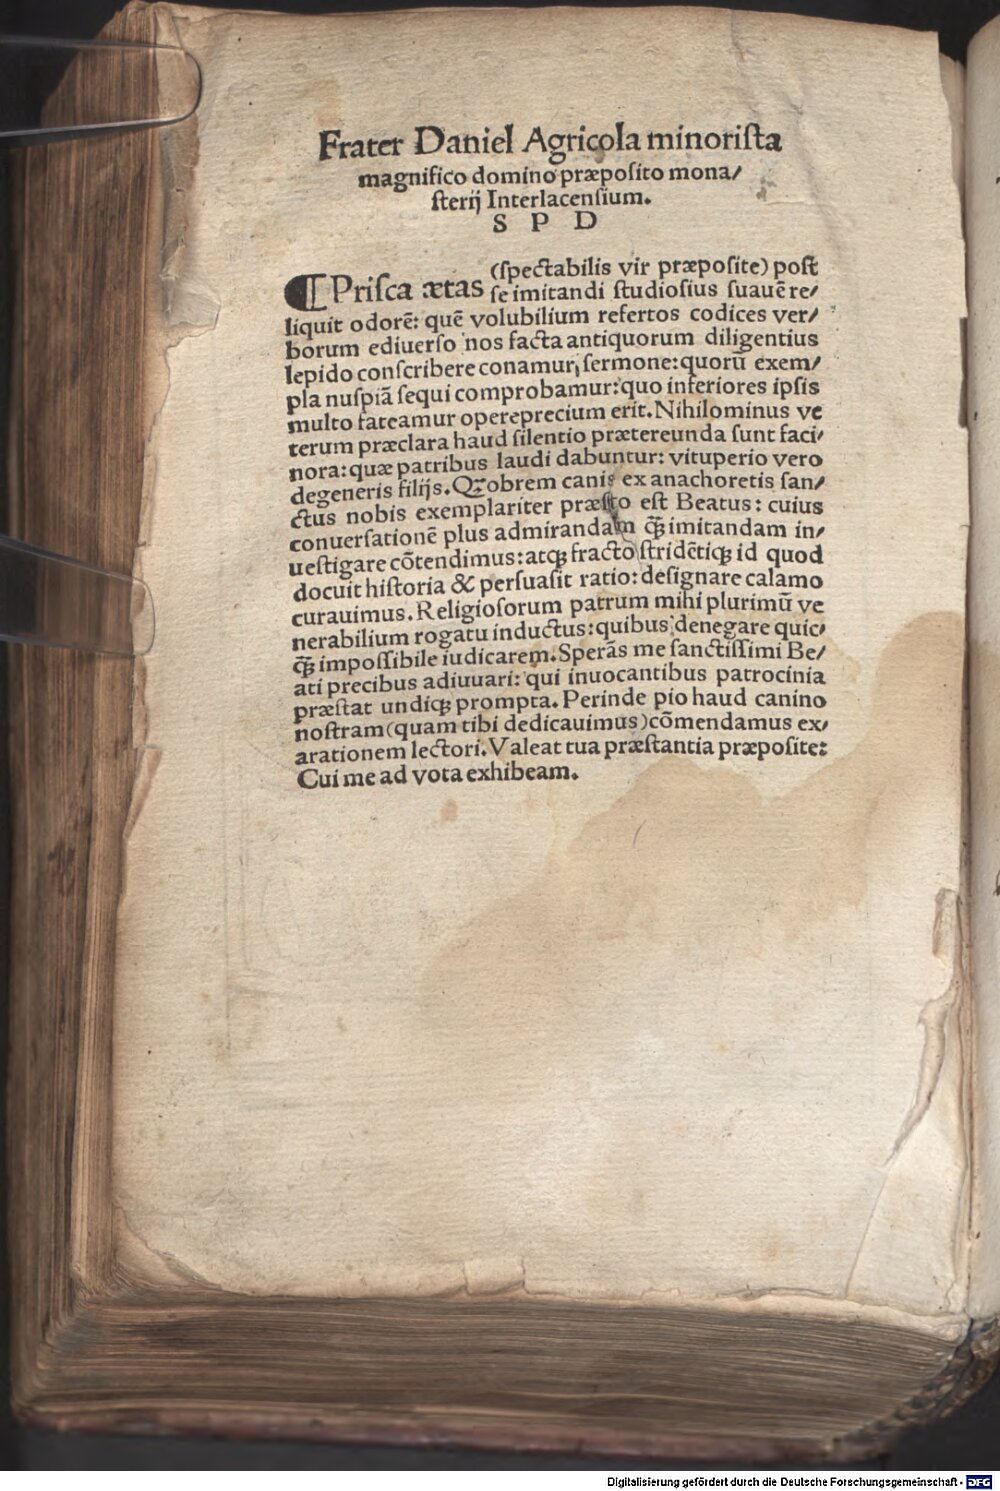 Frater Daniel Agricola minoriſta
magnifico domino præpoſito mona/
ſterij Interlacenſium.
S P D
¶Priſca ætas (ſpectabilis vir præpoſite) poſt
ſe imitandi ſtudioſius ſuauē re/
liquit odorē: quē volubilium refertos codices ver/
borum ediuerſo nos facta antiquorum diligentius
lepido conſcribere conamur ſermone: quorū exem/
pla nuſpiā ſequi comprobamur: quo inferiores ipſis
multo fateamur opereprecium erit. Nihilominus ve
terum præclara haud ſilentio prætereunda ſunt faci/
nora: quæ patribus laudi dabuntur: vituperio vero
degeneris filijs. Qꝛobrem canis ex anachoretis ſan/
ctus nobis exemplariter præſto eſt Beatus: cuius
conuerſationē plus admirandam q̄ꝫ imitandam in/
ueſtigare cōtendimus: atqꝫ fracto ſtridētiqꝫ id quod
docuit hiſtoria & perſuaſit ratio: deſignare calamo
curauimus. Religioſorum patrum mihi plurimū ve
nerabilium rogatu inductus: quibus denegare quic/
q̄ꝫ impoſſibile iudicarem. Sperās me ſanctiſſimi Be/
ati precibus adiuuari: qui inuocantibus patrocinia
præſtat undiqꝫ prompta. Perinde pio haud canino
noſtram (quam tibi dedicauimus) cōmendamus ex/
arationem lectori. Valeat tua præſtantia præpoſite:
Cui me ad vota exhibeam.
Digitalisierung gefördert durch die Deutsche Forschungsgemeinschaft - DFG